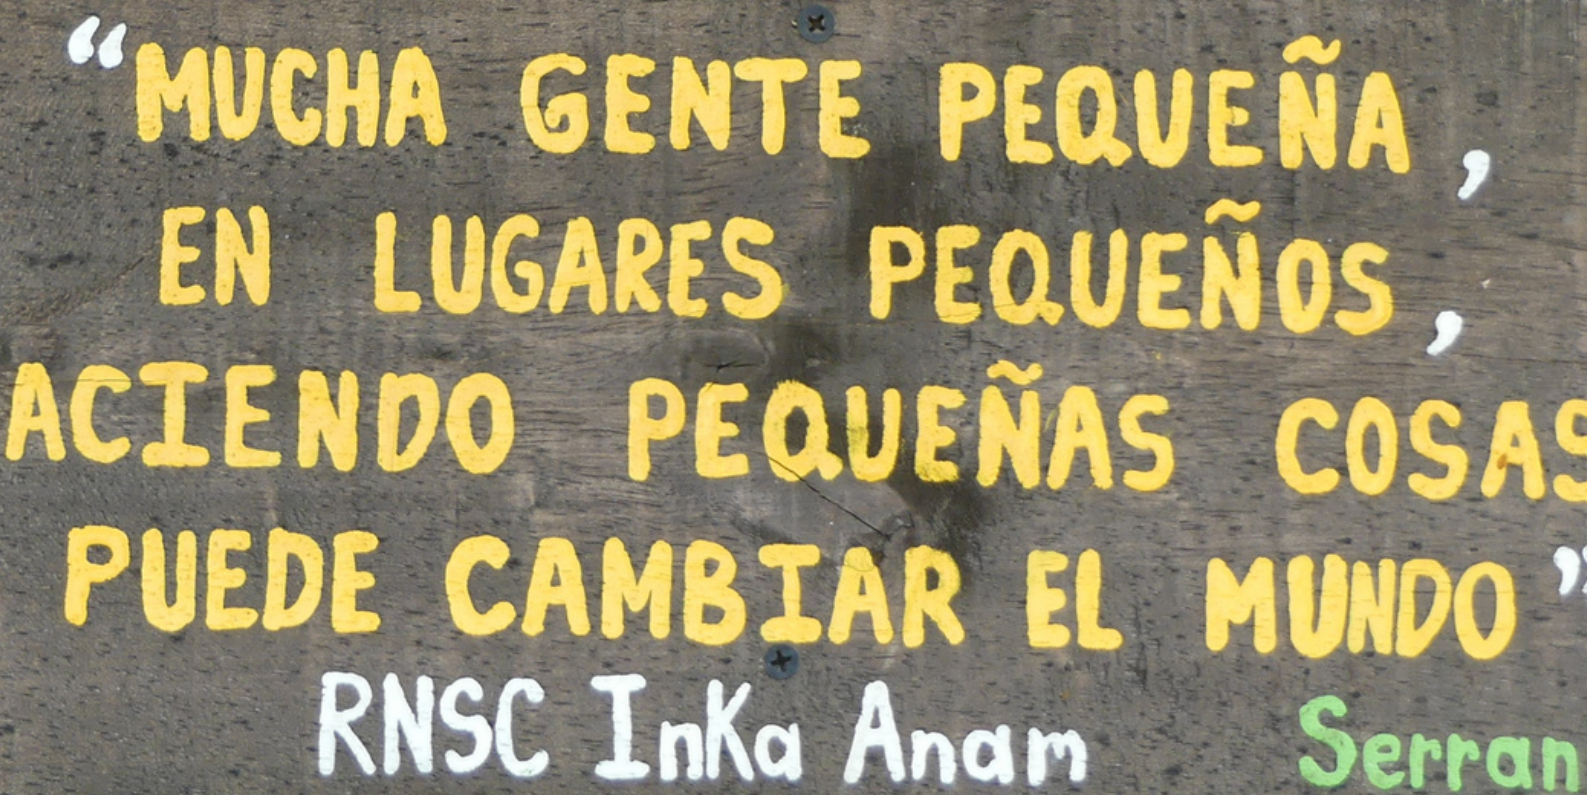 “MUCHA GENTE PEQUEÑA,
EN LUGARES PEQUEÑOS,
ACIENDO PEQUEÑAS COSAS
PUEDE CAMBIAR EL MUNDO”
RNSC InKa Anam Serran